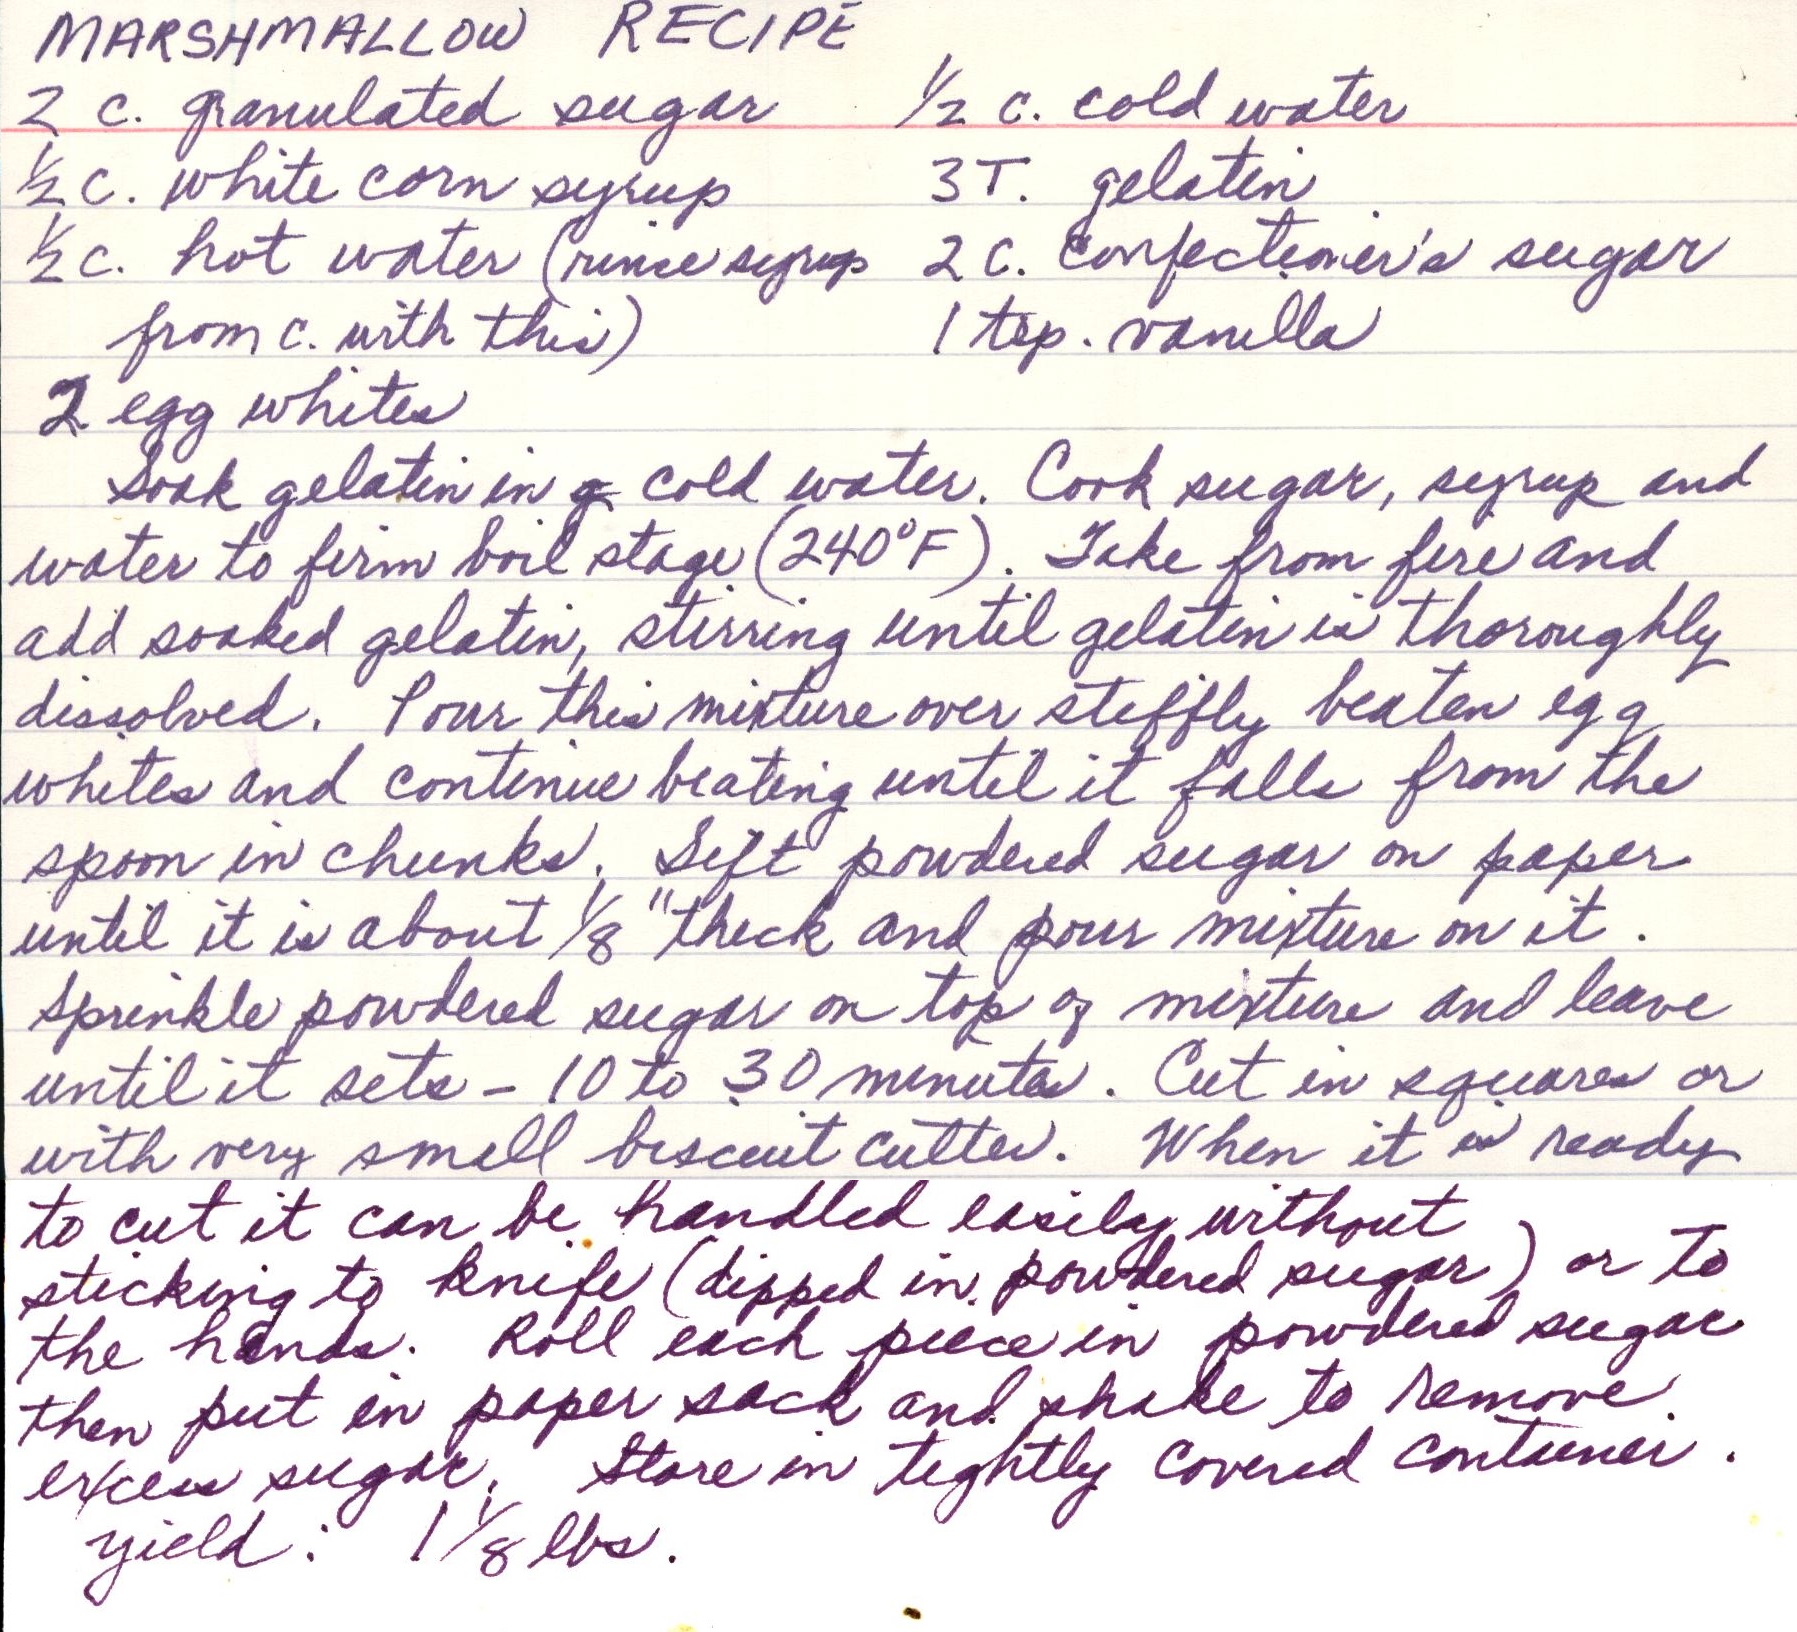 MARSHMALLOW RECIPE
2 c. granulated sugar 1/2 c. cold water
1/2 c. white corn syrup 3 T. gelatin
1/2 c. hot water (rinse syrup 2 c. confectioner's sugar
from c. with this) 1 tsp. vanilla
2 egg whites
Soak gelatin in cold water. Cook sugar, syrup and
water to firm boil stage (240°F). Take from fire and
add soaked gelatin, stirring until gelatin is thoroughly
dissolved. Pour this mixture over stiffly beaten egg
whites and continue beating until it falls from the
spoon in chunks. Sift powdered sugar on paper
until it is about 1/8" thick and pour mixture on it.
Sprinkle powdered sugar on top of mixture and leave
until it sets - 10 to 30 minutes. Cut in squares or
with very small biscuit cutter. When it is ready
to cut it can be handled easily without
sticking to knife (dipped in powdered sugar) or to
the hands. Roll each piece in powdered sugar
then put in paper sack and shake to remove
excess sugar. Store in tightly covered container.
yield: 1 1/8 lbs.